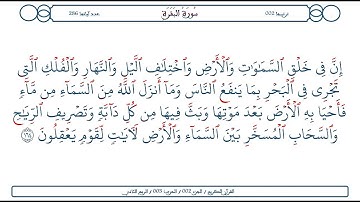 ترتيبها 002
سورة البقرة
عدد آياتها 286
إِنَّ فِى خَلْقِ ٱلسَّمَٰوَٰتِ وَٱلْأَرْضِ وَٱخْتِلَٰفِ ٱلَّيْلِ وَٱلنَّهَارِ وَٱلْفُلْكِ ٱلَّتِى
تَجْرِى فِى ٱلْبَحْرِ بِمَا يَنفَعُ ٱلنَّاسَ وَمَآ أَنزَلَ ٱللَّهُ مِنَ ٱلسَّمَآءِ مِن مَّآءٍ
فَأَحْيَا بِهِ ٱلْأَرْضَ بَعْدَ مَوْتِهَا وَبَثَّ فِيهَا مِن كُلِّ دَآبَّةٍ وَتَصْرِيفِ ٱلرِّيَٰحِ
وَٱلسَّحَابِ ٱلْمُسَخَّرِ بَيْنَ ٱلسَّمَآءِ وَٱلْأَرْضِ لَءَايَٰتٍ لِّقَوْمٍ يَعْقِلُونَ
القرآن الكريم / الجزء 002 / الحزب 003 / الربع الثاني